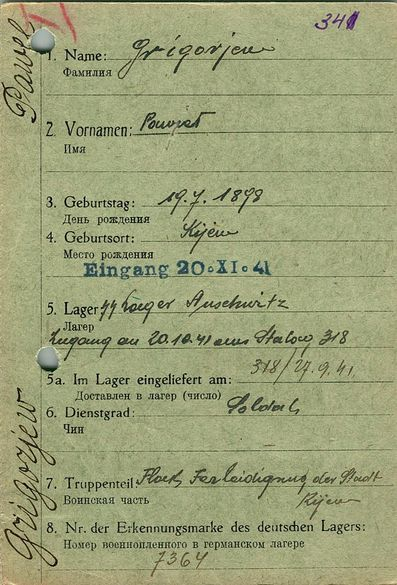 341
1. Name: Grigorjew
Фамилия
2. Vornamen: Pawel
Имя
3. Geburtstag: 19.7.1898
День рождения
4. Geburtsort: Kijew
Место рождения
Eingang 20.XI.41
5. Lager SS Lager Auschwitz
Лагер
Zugang am 20.10.41 aus Stalag 318
318/27.9.41
5a. Im Lager eingeliefert am:
Доставлен в лагер (число)
6. Dienstgrad: Soldat
Чин
7. Truppenteil der Stadt
Воинская часть Kijew
8. Nr. der Erkennungsmarke des deutschen Lagers:
Номер военнопленного в германском лагере
7364
Grigorjew Pawel